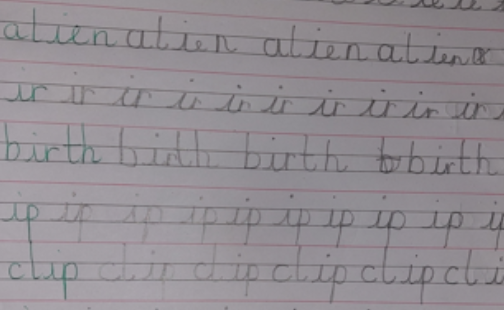 alien alien alien alien
ir ir ir ir ir ir ir ir ir ir
birth birth birth birth
ip ip ip ip ip ip ip ip ip
clip clip clip clip clip cli